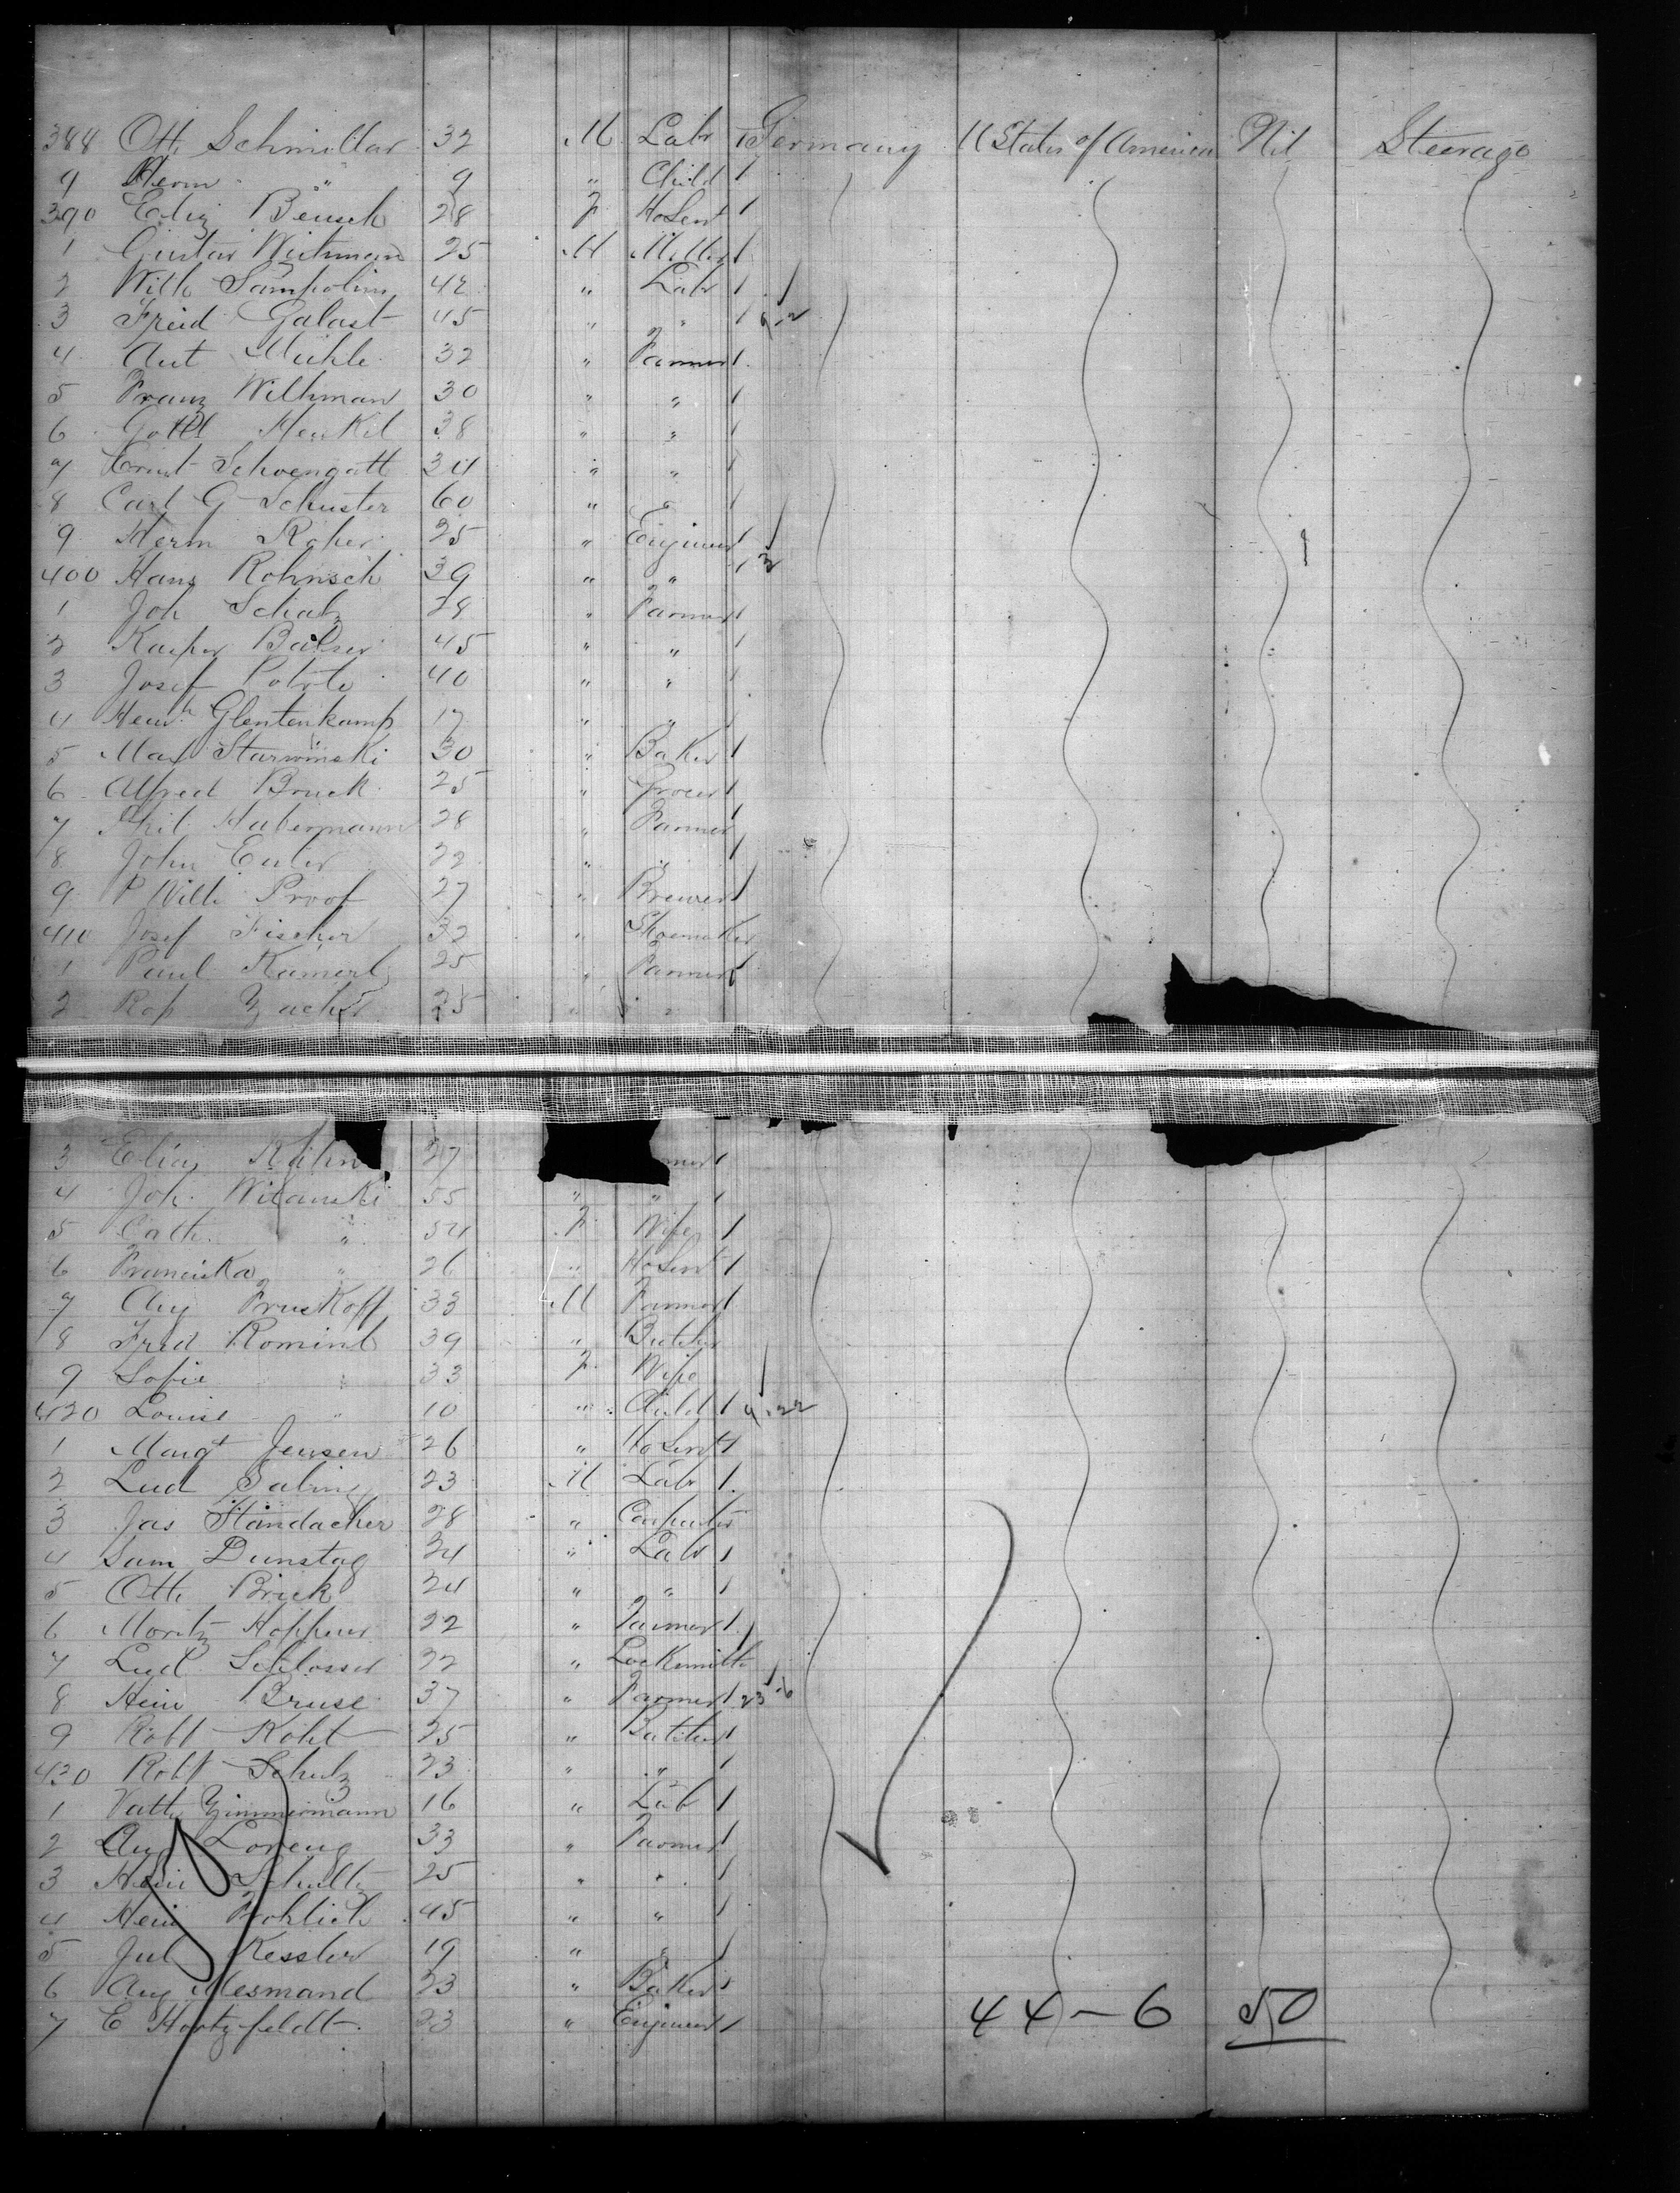 388 Otto Schmillar 32 M Labr Germany U States of America Nil Steerage
9 Herm " 9 " Child
390 Eliz Beusch 28 F HoServt
1 Gustav Wuthmann 25 M Miller
2 Wilh 42 " Labr
3 Freid Galast 45 " " 9.2
4 Aut Muhle 32 " Farmer
5 Franz Wilhman 30 " "
6 Gottl Henkel 38 " "
7 Ernst Schoengatt 34 " "
8 Carl G Schuster 60 "
9 Herm Roher 25 " Engineer
400 Hans Rohnsch 39 " " 3
1 Joh Schatz 28 " Farmer
2 Kasper Balser 45 " "
3 Josef 40 " "
4 Heinh Glentenkamp 17 " "
5 Max Starwinski 30 " Baker
6 Alfred Bruck 25 " Grocer
7 Phil Habermann 28 " Farmer
8 John Euler 22 " "
9 P Wilh Proof 27 " Brewer
410 Josef Fischer 32 " Shoemaker
1 Paul Kamerl 25 " Farmer
2 Rop Zacher 25 " "
3 Elias Kuhn 27
4 Joh Witanski 55 " "
5 Cath " 54 F Wife
6 Franciska " 26 " HoServt
7 Aug Fruskoff 33 M Farmer
8 Fred Rominl 39 " Butcher
9 Sofie " 33 F Wife
420 Louise " 10 " Child 9.22
1 Margt Jensen 26 " HoServt
2 Lud Saling 23 M Labr
3 Jas Standacher 28 " Carpenter
4 Sam Dunstag 34 " Labr
5 Otto Brick 24 " "
6 Moritz Hoppeur 22 " Farmer
7 Lud Schlosser 32 " Locksmith
8 Hein Bruse 37 " Farmer 23
9 Robt Koht 25 " Butcher
430 Robt Schulz 23 " "
1 Valth Zimmermann 16 " Lab
2 Aug Loreng 33 " Farmer
3 Hein Schultz 25 " "
4 Hein Frohlich 45 " "
5 Jul Kessler 19 " "
6 Aug Mesmand 23 " Baker
7 E Hartzfeldt 23 " Engineer 44-6 50